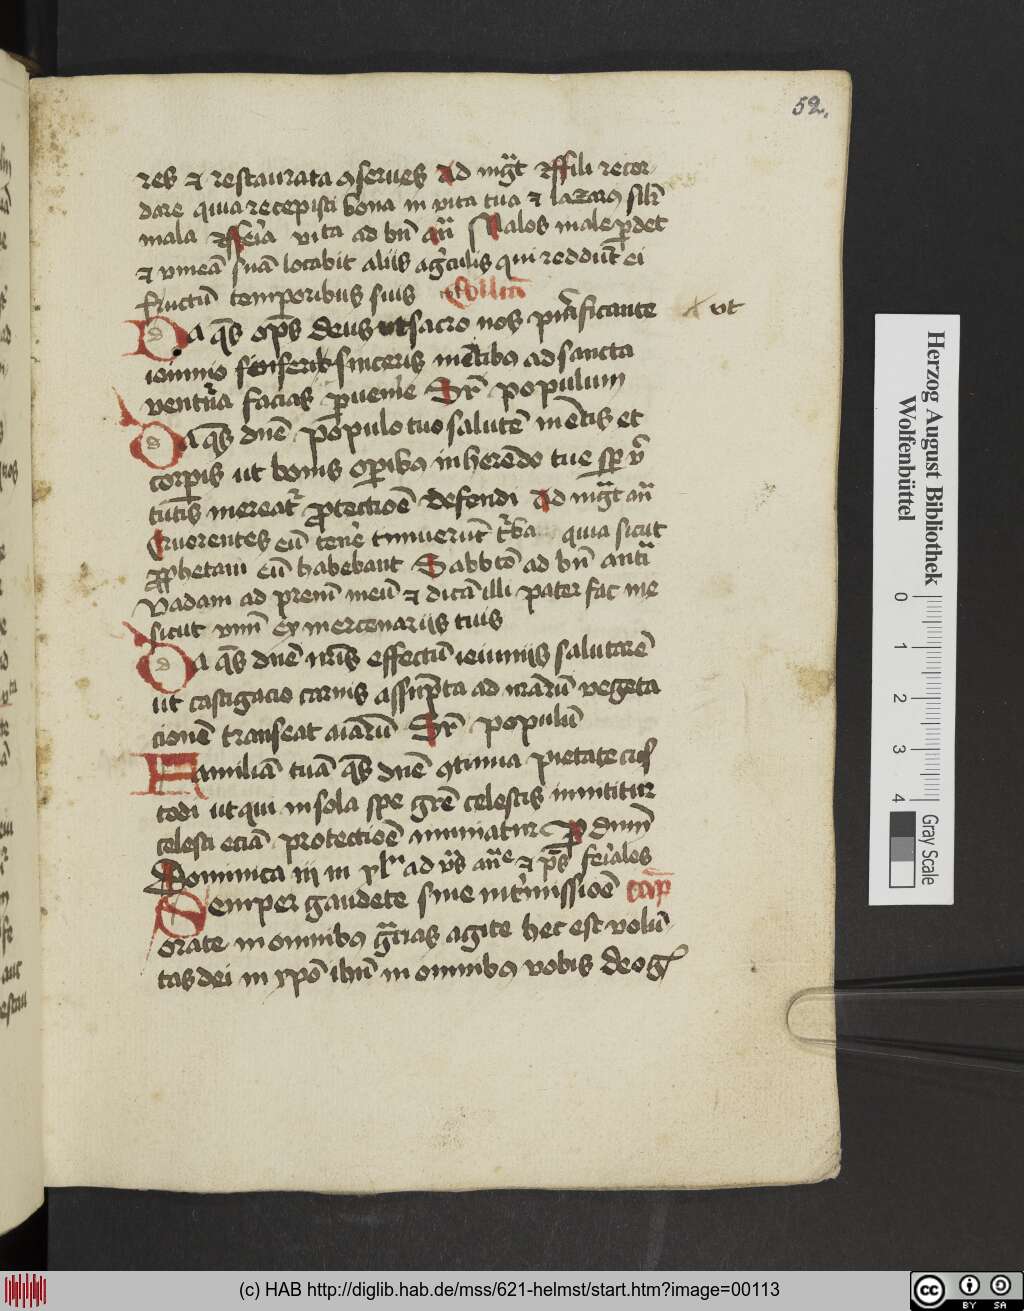 52.
res et restaurata ꝯserues Ad mgͣt Rͣ fili recor
dare quia recepisti bona in vita tua et lazarus silr̄
mala feīa vita ad bn̄ an̄ Malos male ꝑdet
et vineā suā locabit aliis agͥculis qui reddūt ei
fructū temporibus suis Collcā
Da qs̄ op̄s deus ut sacro nos purͥficante ut
ieiunio sinceris mētibꝰ ad sancta
ventͥra facias ꝑuenīe Sr̄ populum
Da qs̄ dn̄e populo tuo salutē mētis et
corꝑis ut bonis oꝑibꝰ inherēdo tue sꝑ vͥ
tutis mereatͬ ꝓtectiōe defendi Ad mgͣt an̄
Querentes eū tenēe timuerūt tͬbas quia sicut
ꝓphetam eū habebant Sabbͦto ad bn̄ antͣ
Vadam ad prem̄ meū et dicā illi pater fac me
sicut vnū ex mercenariis tuis
Da qs̄ dn̄e nrīs effectū ieiuniis salutarē
ut castigacio carnis assūpta ad nrārū vegeta
cionē transeat aīarū Sr̄ populū
Familiā tuā qs̄ dn̄e ꝯtinua pietate cus
todi ut qui in sola spe grē celestis innititur
celesti eciā protectiōe muniatur ꝑ dnm̄
Dominica iij in xlͫ ad vs̄ an̄e et ps̄ feīales
Semper gaudete sine intͬmissiōe cap̄
orate in omnibꝰ gͣcias agite hec est volū
tas dei in xpo ihū in omnibꝰ vobis deo gͣ
Herzog August Bibliothek
Wolfenbüttel
0 1 2 3 4
Gray Scale
(c) HAB http://diglib.hab.de/mss/621-helmst/start.htm?image=00113
CC BY SA